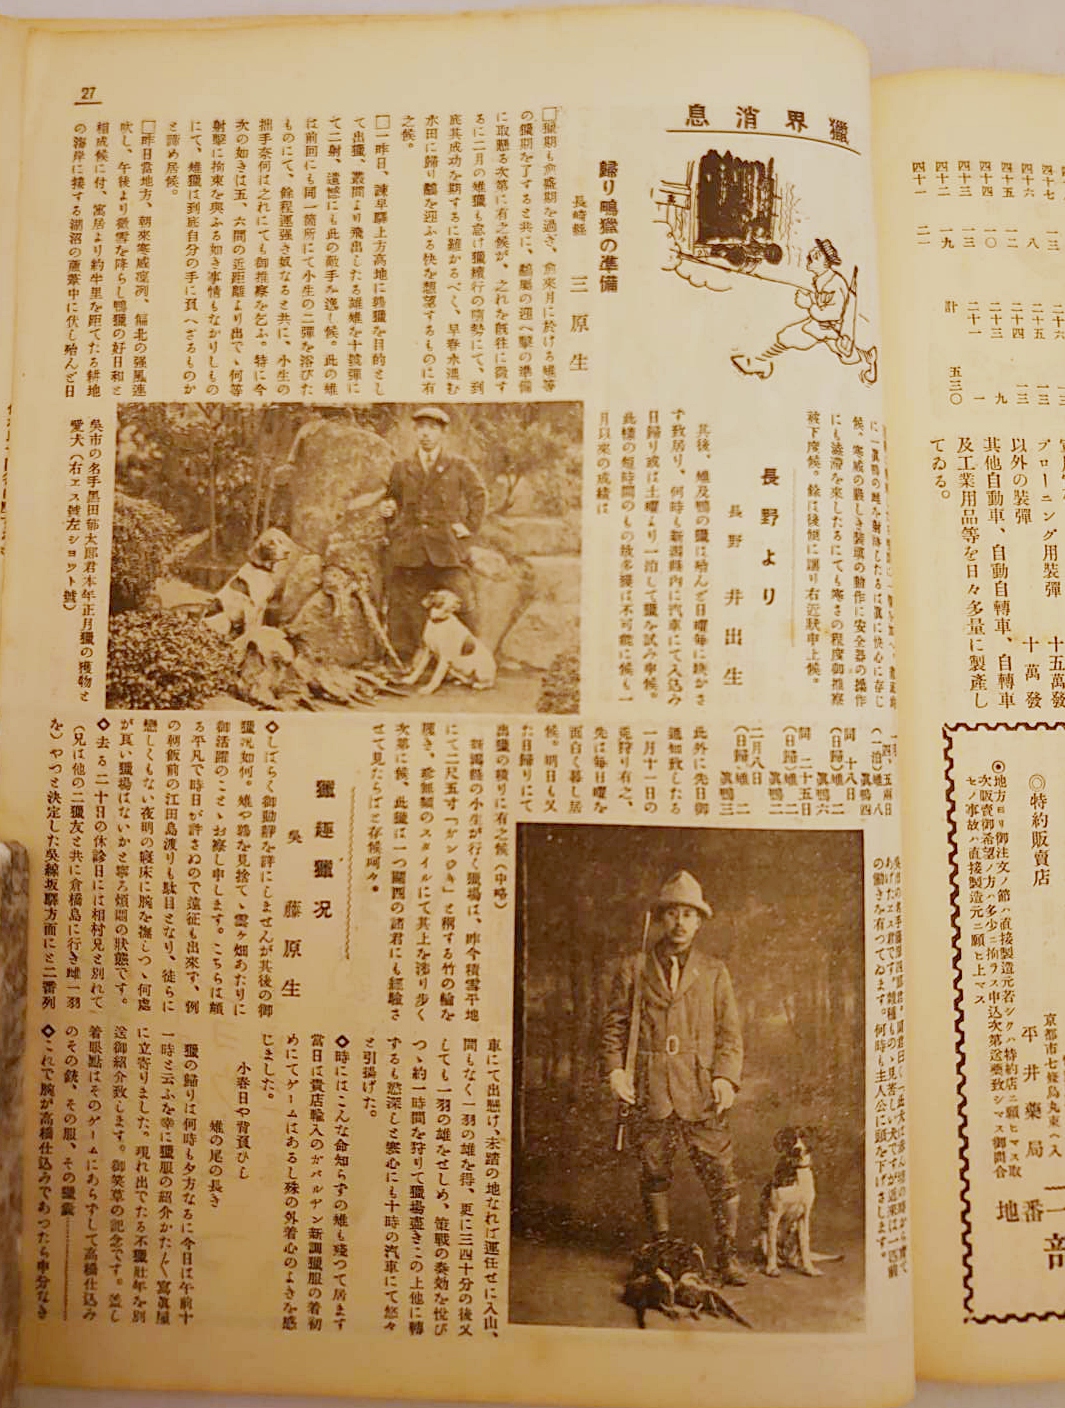 27
獵界消息
歸り鴨獵の準備
長崎縣 三原生
□獵期も愈盛期を過ぎ、愈來月に於ける雄等
の獵期を了すると共に、鶴鳬の迎へ擊の準備
に取懸る次第に有之候が、之れを旣往に徵す
るに二月の雄獵も怠け獵續行の情勢にて、到
底其成功を期するに難かるべく、早春水温む
水田に歸り鶴を迎ふる快を想望するものに有
之候。
□一昨日、諫早驛上方高地に鶉獵を目的とし
て出獵、叢間より飛出したる雄雉を十號彈に
て二射、遺憾にも此の敵手を逸し候。此の雄
は前回にも同一箇所にて小生の二彈を浴びた
ものにて、餘程運强き奴なると共に、小生の
拙手奈何は之れにても御推察を乞ふ。特に今
次の如きは五、六間の近距離より出で、何等
射擊に拘束を與ふる如き事情もなかりしもの
にて、雉獵は到底自分の手に負へざるものか
と諦め居候。
□昨日當地方、朝來寒威凜冽、偏北の强風連
吹し、午後より微雪を降らし鴨獵の好日和と
相成候に付、寓居より約半里を距てたる耕地
の海岸に接する湖沼の蘆葦中に伏し殆んど日
候、寒威の嚴しき裝塡の動作に安全器の操作
にも澁滯を來したるにても寒さの程度御推察
被下度候。餘は後便に讓り右近狀申上候。
長野より
長野 井出生
其後、雉及鴨の獵は殆んど日曜每に缺かさ
ず致居り、何時も新潟縣内に汽車にて入込み
日歸り或は土曜より一泊して獵を試み申候。
此樣の短時間のもの故多獲は不可能に候も一
月以來の成績は
吳市の名手黑田郁太郎君本年正月獵の獲物と
愛犬（右エス號左ショット號）
（一泊）雉八
眞鴨四
同 十八日
（日歸）雉二
眞鴨六
同 二十五日
（日歸）雉二
眞鴨二
二月八日
（日歸）雉二
眞鴨三
此外に先日御
通知致したる
一月十一日の
兎狩り有之、
先は每日曜を
面白く暮し居
候。明日も又
た日歸りにて
出獵の積りに有之候（中略）
新潟縣の小生が行く獵場は、昨今積雪平地
にて二尺五寸「かンジキ」と稱する竹の輪を
履き、珍無類のスタイルにて其上を渉り步く
次第に候、此獵は一つ關西の諸君にも經驗さ
せて見たらばと存候呵々。
獵趣獵況
吳 藤原生
◇しばらく御動靜を詳にしませんが其後の御
獵況如何。雉や鶉を見捨て、雲ヶ畑あたりに
御活躍のことゝお察し申します。こちらは頗
る平凡で時日が許さぬので遠征も出來ず、例
の朝飯前の江田島渡りも駄目となり、徒らに
戀しくもない夜明の寢床に腕を撫しつゝ何處
が良い獵場はないかと寧ろ煩悶の狀態です。
◇去る二十日の休診日には相村兄と別れて
（兄は他の二獵友と共に倉橋島に行き雌一羽
を）やつと決定した吳線坂驛方面にと二番列
車にて出懸け、未踏の地なれば運任せに入山、
間もなく一羽の雄を得、更に三四十分の後又
しても一羽の雄をせしめ、策戰の奏効を悅び
つゝ約一時間を狩りて獵場盡きこの上他に轉
ずるも慾深しと寒心にも十時の汽車にて悠々
と引揚げた。
◇時にはこんな命知らずの雄も殘つて居ます
當日は貴店輸入のガバルヂン新調獵服の着初
めにてゲームはあるし殊の外着心のよきを感
じました。
小春日や背負ひし
雄の尾の長き
獵の歸りは何時も夕方なるに今日は午前十
一時と云ふを幸に獵服の紹介かた〲寫眞屋
に立寄りました。現れ出でたる不獵壯年を別
送御紹介致します。御笑草の記念です。蓋し
着眼點はそのゲームにあらずして高橋仕込み
のその銃、その服、その獵囊…………
◇これで腕が高橋仕込みであつたら申分なき
の働きを有つてゐます。何時も主人公に頭を下げさします。
ブローニング用裝彈 十五萬發
以外の裝彈 十萬發
其他自動車、自動自轉車、自轉車
及工業用品等を日々多量に製産し
てゐる。
計 五三〇
◎特約販賣店
◉地方ヨリ御注文ノ節ハ直接製造元若シクハ特約店ニ願ヒマス取
次販賣御希望ノ方ハ多少ニ拘ラス申込次第送藥致シマス御問合
セノ事故ハ直接製造元ニ願ヒ上マス
京都市七條烏丸東ヘ入
平井藥局